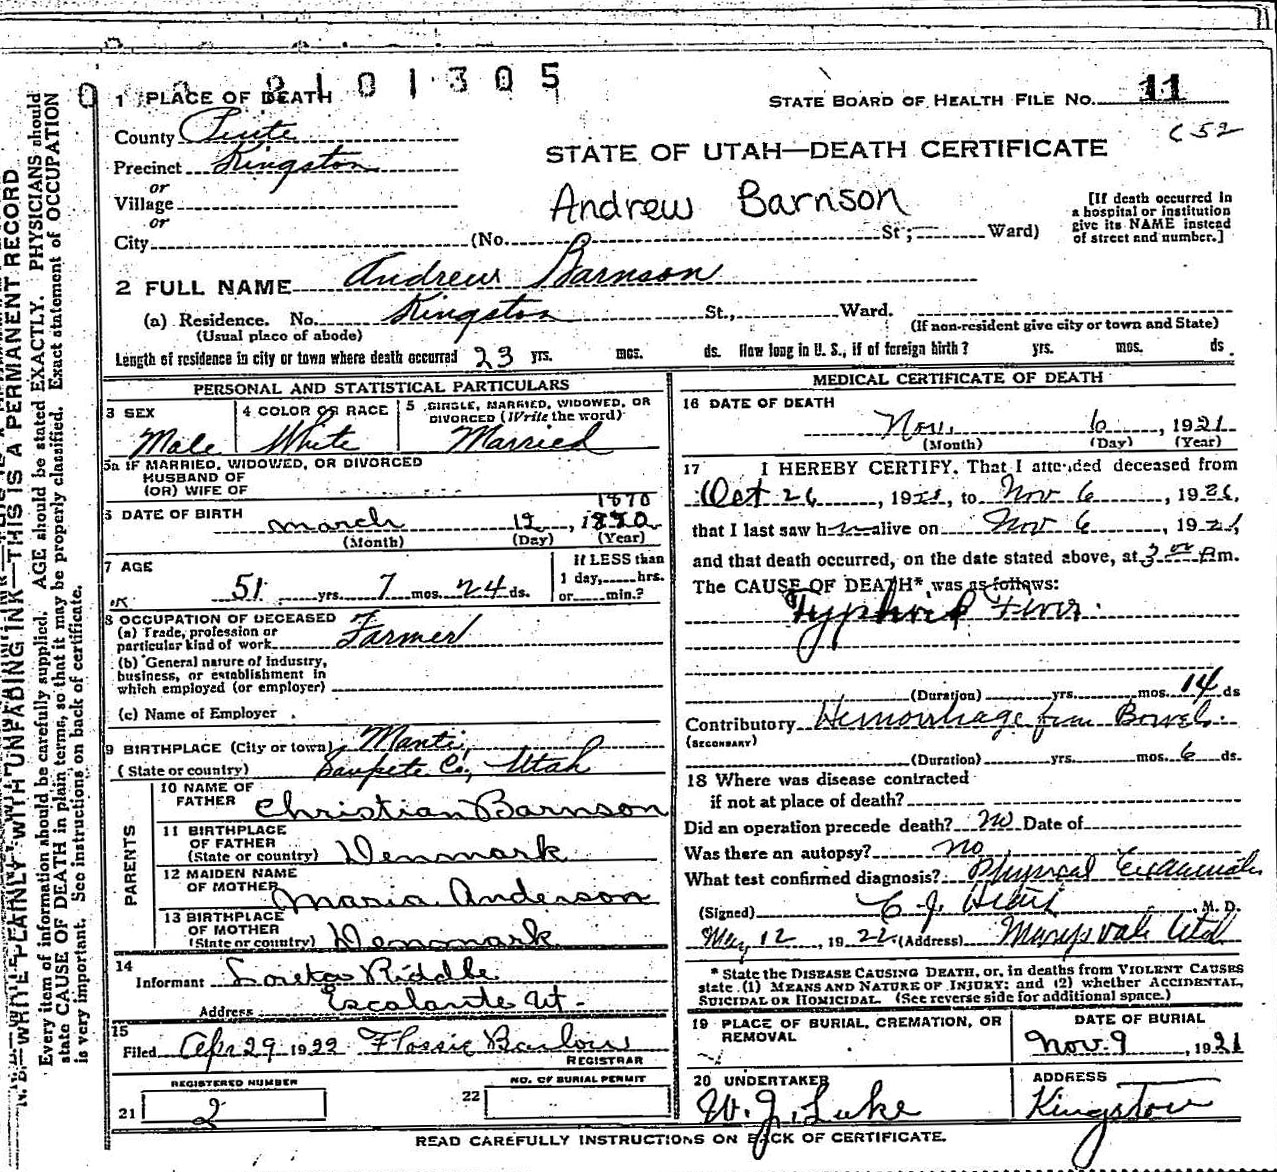 0 2101305
11
1 PLACE OF DEATH
STATE BOARD OF HEALTH FILE No. 11
C52
County Piute
STATE OF UTAH—DEATH CERTIFICATE
Precinct Kingston
or
Village
Andrew Barnson
[If death occurred in
a hospital or institution
give its NAME instead
of street and number.]
or
City (No. St; Ward)
2 FULL NAME Andrew Barnson
(a) Residence. No. Kingston St., Ward.
(Usual place of abode) (If non-resident give city or town and State)
Length of residence in city or town where death occurred 23 yrs. mos. ds. How long in U. S., if of foreign birth? yrs. mos. ds.
PERSONAL AND STATISTICAL PARTICULARS
3 SEX
Male
4 COLOR OR RACE
White
5 SINGLE, MARRIED, WIDOWED, OR
DIVORCED (Write the word)
Married
5a IF MARRIED, WIDOWED, OR DIVORCED
HUSBAND OF
(OR) WIFE OF
1870
6 DATE OF BIRTH March 12, 1870
(Month) (Day) (Year)
7 AGE
51 yrs. 7 mos. 24 ds.
If LESS than
1 day, hrs.
or min.?
8 OCCUPATION OF DECEASED
(a) Trade, profession or
particular kind of work Farmer
(b) General nature of industry,
business, or establishment in
which employed (or employer)
(c) Name of Employer
9 BIRTHPLACE (City or town) Manti,
(State or country) Sanpete Co, Utah
PARENTS
10 NAME OF
FATHER Christian Barnson
11 BIRTHPLACE
OF FATHER
(State or country) Denmark
12 MAIDEN NAME
OF MOTHER Maria Anderson
13 BIRTHPLACE
OF MOTHER
(State or country) Denmark
14
Informant Loreta Riddle
Address Escalante Ut.
15
Filed Apr 29 1922 Flossie Barlow
REGISTRAR
REGISTERED NUMBER
21 2
NO. OF BURIAL PERMIT
22
MEDICAL CERTIFICATE OF DEATH
16 DATE OF DEATH
Nov. 6, 1921
(Month) (Day) (Year)
17 I HEREBY CERTIFY, That I attended deceased from
Oct 26, 1921, to Nov 6, 1921,
that I last saw him alive on Nov 6, 1921,
and that death occurred, on the date stated above, at 3 00 Am.
The CAUSE OF DEATH* was as follows:
Typhoid Fever.
(Duration) yrs. mos. 14 ds
Contributory Hemorrhage from Bowel.
(SECONDARY)
(Duration) yrs. mos. 6 ds.
18 Where was disease contracted
if not at place of death?
Did an operation precede death? No Date of
Was there an autopsy? no
What test confirmed diagnosis? Physical
(Signed) C. J. M. D.
May 12, 1922 (Address) Marysvale Utah
* State the DISEASE CAUSING DEATH, or, in deaths from VIOLENT CAUSES
state (1) MEANS AND NATURE OF INJURY; and (2) whether ACCIDENTAL,
SUICIDAL OR HOMICIDAL. (See reverse side for additional space.)
19 PLACE OF BURIAL, CREMATION, OR
REMOVAL
DATE OF BURIAL
Nov. 9, 1921
20 UNDERTAKER
W. J. Luke
ADDRESS
Kingston
READ CAREFULLY INSTRUCTIONS ON BACK OF CERTIFICATE.
N. B.—WRITE PLAINLY WITH UNFADING INK—THIS IS A PERMANENT RECORD
Every item of information should be carefully supplied. AGE should be stated EXACTLY. PHYSICIANS should
state CAUSE OF DEATH in plain terms, so that it may be properly classified. Exact statement of OCCUPATION
is very important. See instructions on back of certificate.